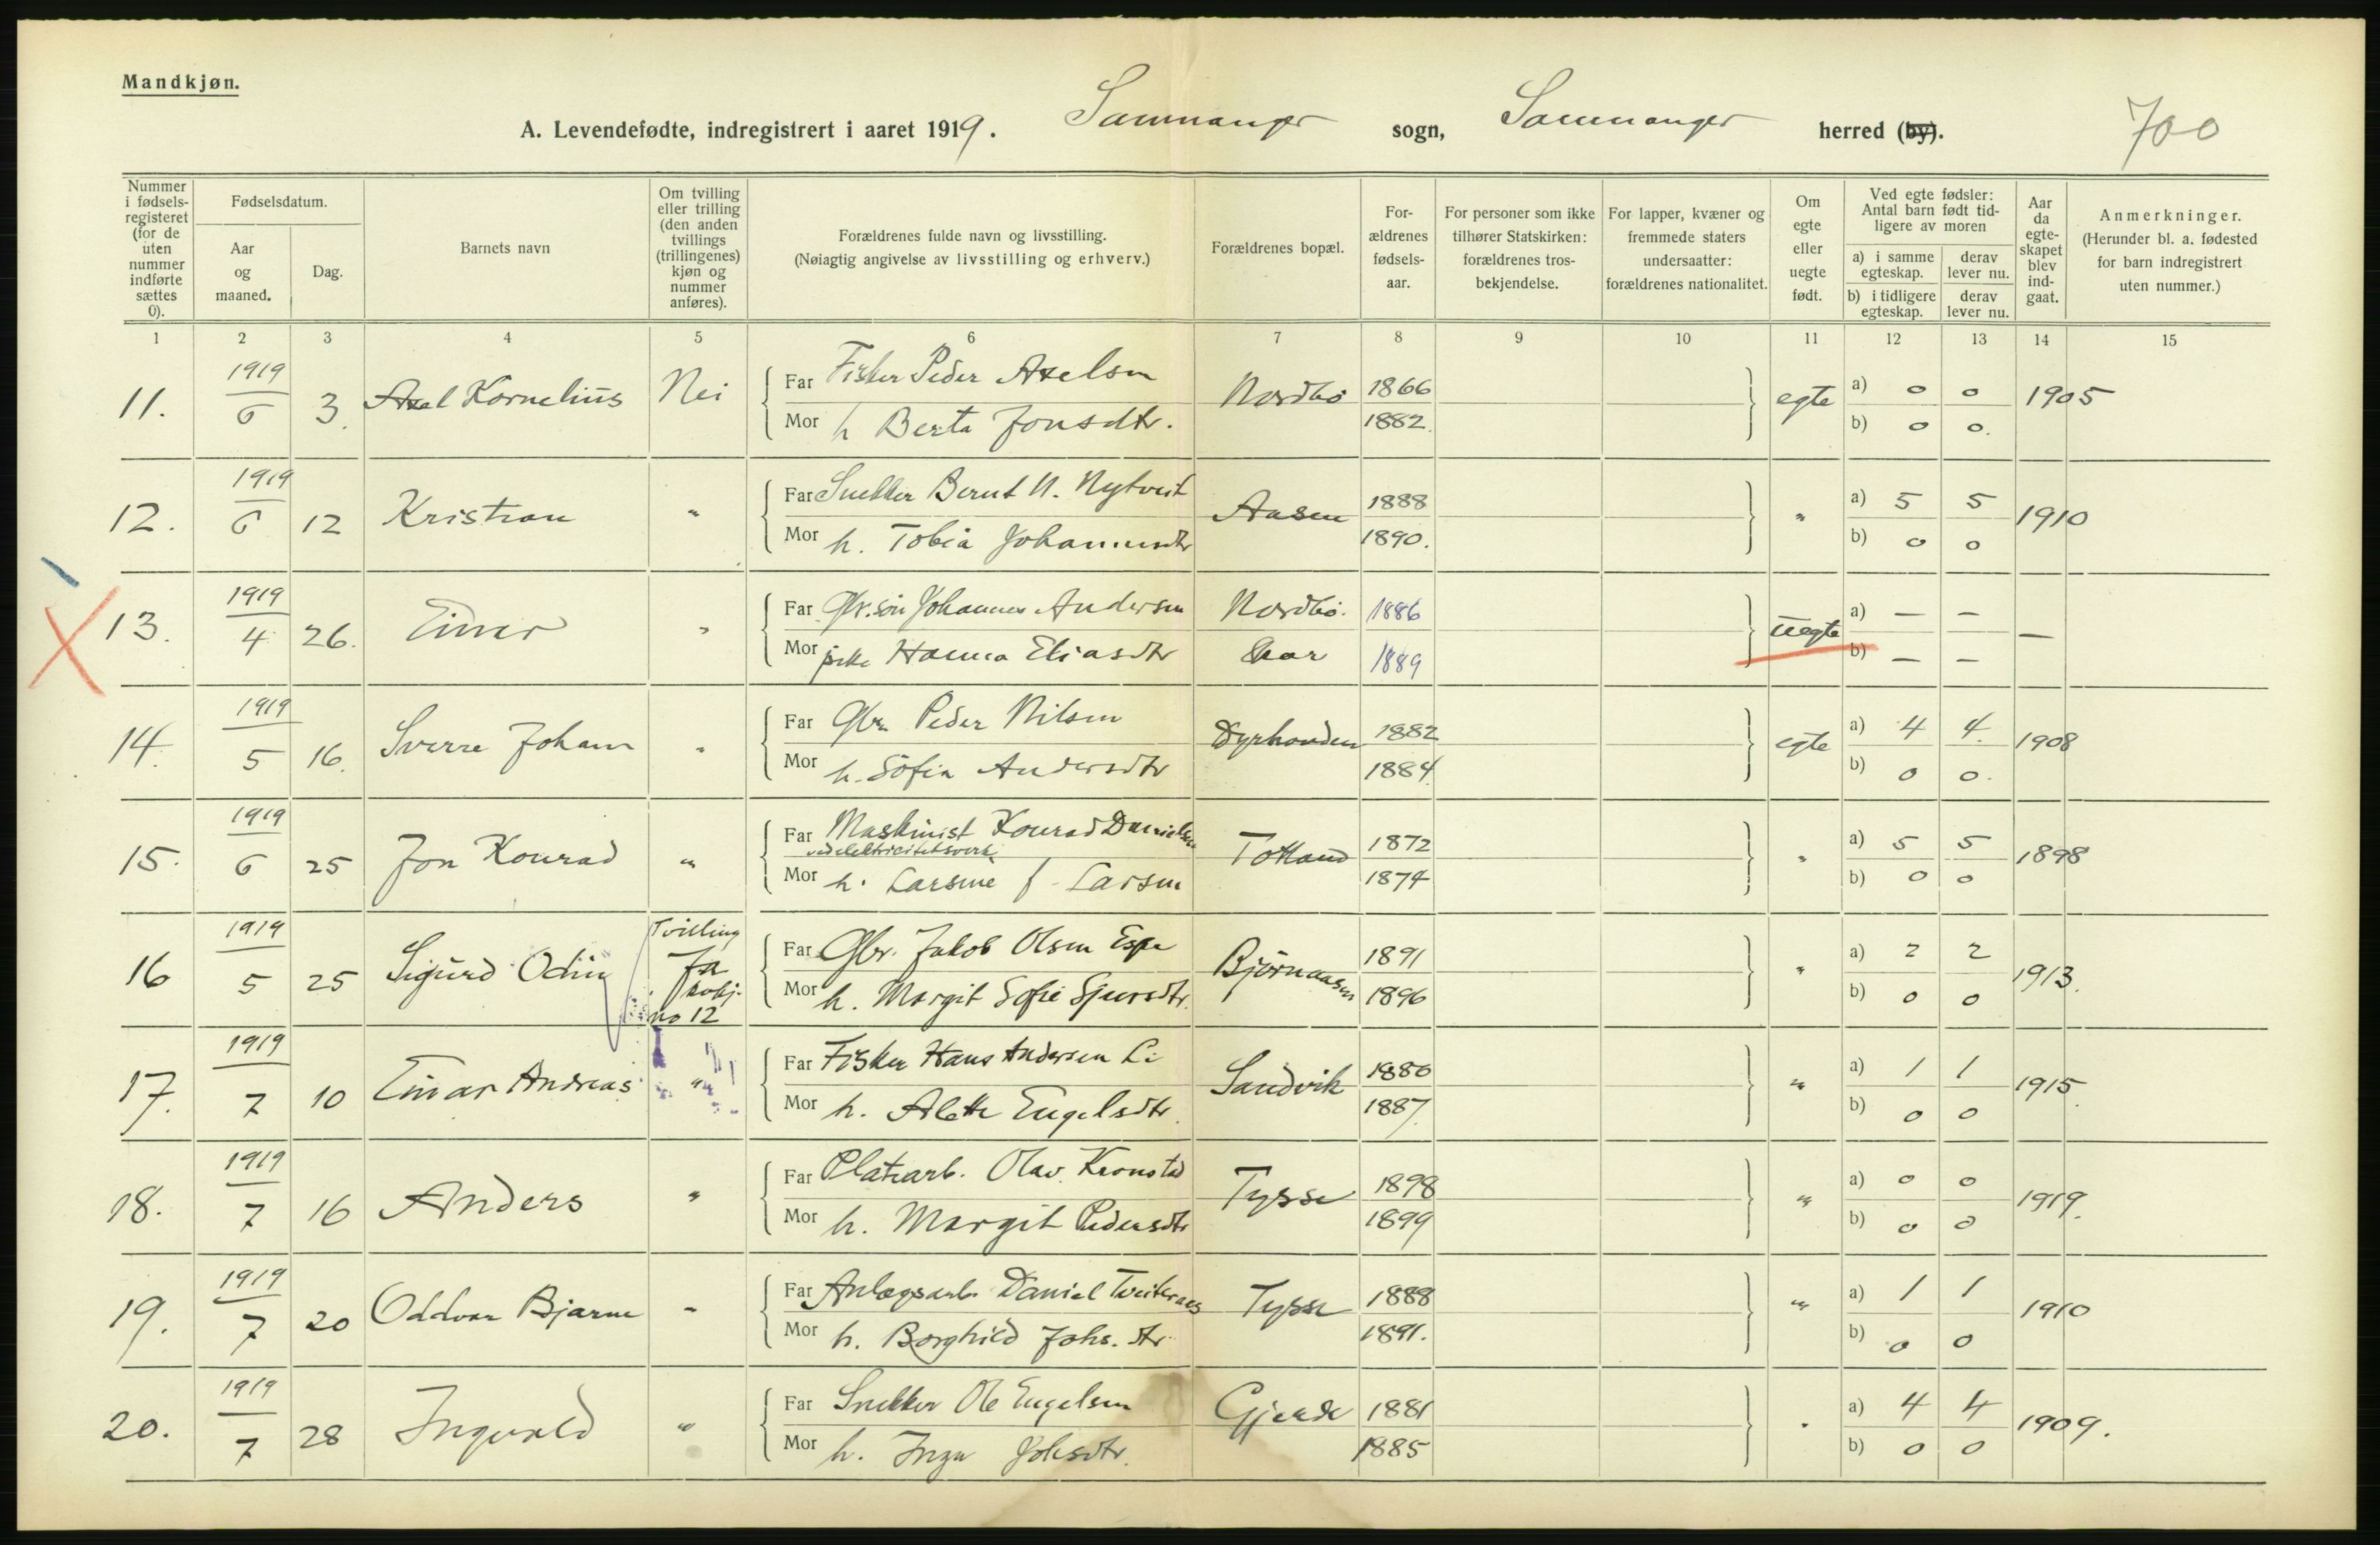 Mandkjøn.
A. Levendefødte, indregistrert i aaret 1919. Samnanger sogn, Samnanger herred (by). 700
Nummer i fødselsregisteret (for de uten nummer indførte sættes 0).
Fødselsdatum.
Aar og maaned.
Dag.
Barnets navn
Om tvilling eller trilling (den anden tvillings (trillingenes) kjøn og nummer anføres).
Forældrenes fulde navn og livsstilling.
(Nøiagtig angivelse av livsstilling og erhverv.)
Forældrenes bopæl.
For-ældrenes fødsels-aar.
For personer som ikke tilhører Statskirken: forældrenes tros-bekjendelse.
For lapper, kvæner og fremmede staters undersaatter: forældrenes nationalitet.
Om egte eller uegte født.
Ved egte fødsler: Antal barn født tid-ligere av moren
a) i samme egteskap. derav lever nu.
b) i tidligere egteskap. derav lever nu.
Aar da egte-skapet blev ind-gaat.
Anmerkninger.
(Herunder bl. a. fødested for barn indregistrert uten nummer.)
1 2 3 4 5 6 7 8 9 10 11 12 13 14 15
11. 1919 6 3. Axel Kornelius Nei Far Fisker Peder Axelsen Nordbø 1866 egte a) 0 0 1905
Mor h Berta Jonsdtr. 1882. b) 0 0.
12. 1919 6 12 Kristian " Far Snekker Bernt N. Nytveit Aasen 1888 " a) 5 5 1910
Mor h. Tobia Johannesdtr 1890. b) 0 0
13. 1919 4 26. Einar " Far Gbr.søn Johannes Andersen Nordbø. 1886 uegte a) — — —
Mor pike Hanna Eliasdtr 1889 b) — —
14. 1919 5 16. Sverre Johan " Far Gbr. Peder Nilsen Dyrhovden 1882 egte a) 4 4. 1908
Mor h. Sofia Andersdtr 1884. b) 0 0.
15. 1919 6 25 Jon Konrad " Far Maskinist Konrad Danielsen Totland 1872 " a) 5 5 1898
ved elektricitetsverk
Mor h. Larsine f. Larsen 1874 b) 0 0
16 1919 5 25 Sigurd Odin Tvilling Ja kvkj. no 12 Far Gbr. Jakob Olsen Espe Bjørnaasen 1891 " a) 2 2 1913.
Mor h. Margit Sofie Sjursdtr. 1896 b) 0 0
17. 1919 7 10 Einar Andreas " Far Fisker Hans Andersen Li Sandvik 1886 " a) 1 1 1915
Mor h. Alette Engelsdtr. 1887. b) 0 0
18. 1919 7 16 Anders " Far Olav Kronstad Tysse 1898 " a) 0 0 1919.
Mor h. Margit Pedersdtr 1899 b) 0 0
19. 1919 7 20 Oddvar Bjarne " Far Anlægsarb. Daniel Tveiteraas Tysse 1888 " a) 1 1 1910
Mor h. Borghild Johs.dtr. 1891. b) 0 0
20. 1919 7 28 Ingvald " Far Snekker Ole Engelsen Gjerde 1881 " a) 4 4 1909.
Mor h. Inga Johsdtr. 1885 b) 0 0